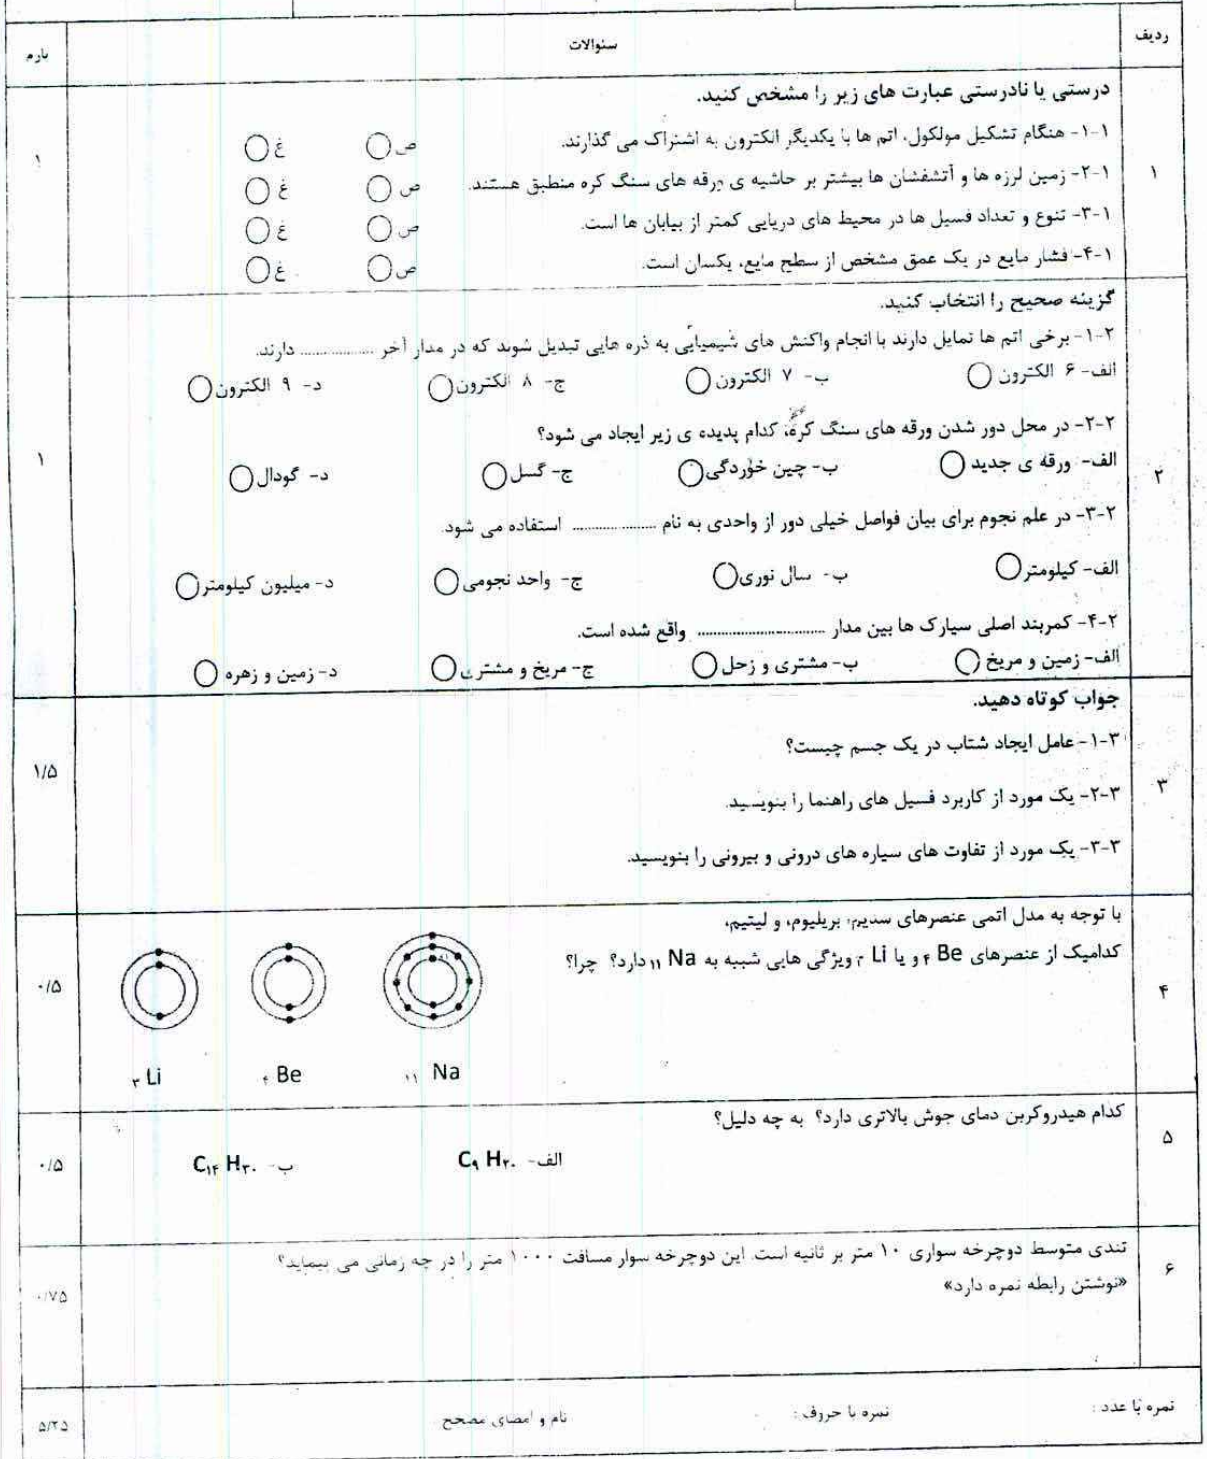 ردیف سئوالات بارم
درستی یا نادرستی عبارت های زیر را مشخص کنید.
۱-۱- هنگام تشکیل مولکول، اتم ها با یکدیگر الکترون به اشتراک می گذارند. ص غ
۱-۲- زمین لرزه ها و آتشفشان ها بیشتر بر حاشیه ی ورقه های سنگ کره منطبق هستند. ص غ
۱ ۱
۱-۳- تنوع و تعداد فسیل ها در محیط های دریایی کمتر از بیابان ها است. ص غ
۱-۴- فشار مایع در یک عمق مشخص از سطح مایع، یکسان است. ص غ
گزینه صحیح را انتخاب کنید.
۲-۱- برخی اتم ها تمایل دارند با انجام واکنش های شیمیایی به ذره هایی تبدیل شوند که در مدار آخر ................ دارند.
الف- ۶ الکترون ب- ۷ الکترون ج- ۸ الکترون د- ۹ الکترون
۲-۲- در محل دور شدن ورقه های سنگ کره، کدام پدیده ی زیر ایجاد می شود؟
الف- ورقه ی جدید ب- چین خوردگی ج- گسل د- گودال
۲ ۱
۲-۳- در علم نجوم برای بیان فواصل خیلی دور از واحدی به نام .................... استفاده می شود.
الف- کیلومتر ب- سال نوری ج- واحد نجومی د- میلیون کیلومتر
۲-۴- کمربند اصلی سیارک ها بین مدار .............................. واقع شده است.
الف- زمین و مریخ ب- مشتری و زحل ج- مریخ و مشتری د- زمین و زهره
جواب کوتاه دهید.
۳-۱- عامل ایجاد شتاب در یک جسم چیست؟
۳ ۱/۵
۳-۲- یک مورد از کاربرد فسیل های راهنما را بنویسید.
۳-۳- یک مورد از تفاوت های سیاره های درونی و بیرونی را بنویسید.
با توجه به مدل اتمی عنصرهای سدیم، بریلیوم، و لیتیم،
کدامیک از عنصرهای ۴Be و یا ۳Li ویژگی هایی شبیه به ۱۱Na دارد؟ چرا؟
۴ ۰/۵
۱۱Na ۴Be ۳Li
کدام هیدروکربن دمای جوش بالاتری دارد؟ به چه دلیل؟
۵ ۰/۵
الف- C۹H۲۰ ب- C۱۴H۳۰
تندی متوسط دوچرخه سواری ۱۰ متر بر ثانیه است. این دوچرخه سوار مسافت ۱۰۰۰ متر را در چه زمانی می پیماید؟
«نوشتن رابطه نمره دارد»
۶ ۰/۷۵
نمره با عدد : نمره با حروف : نام و امضای مصحح ۵/۲۵